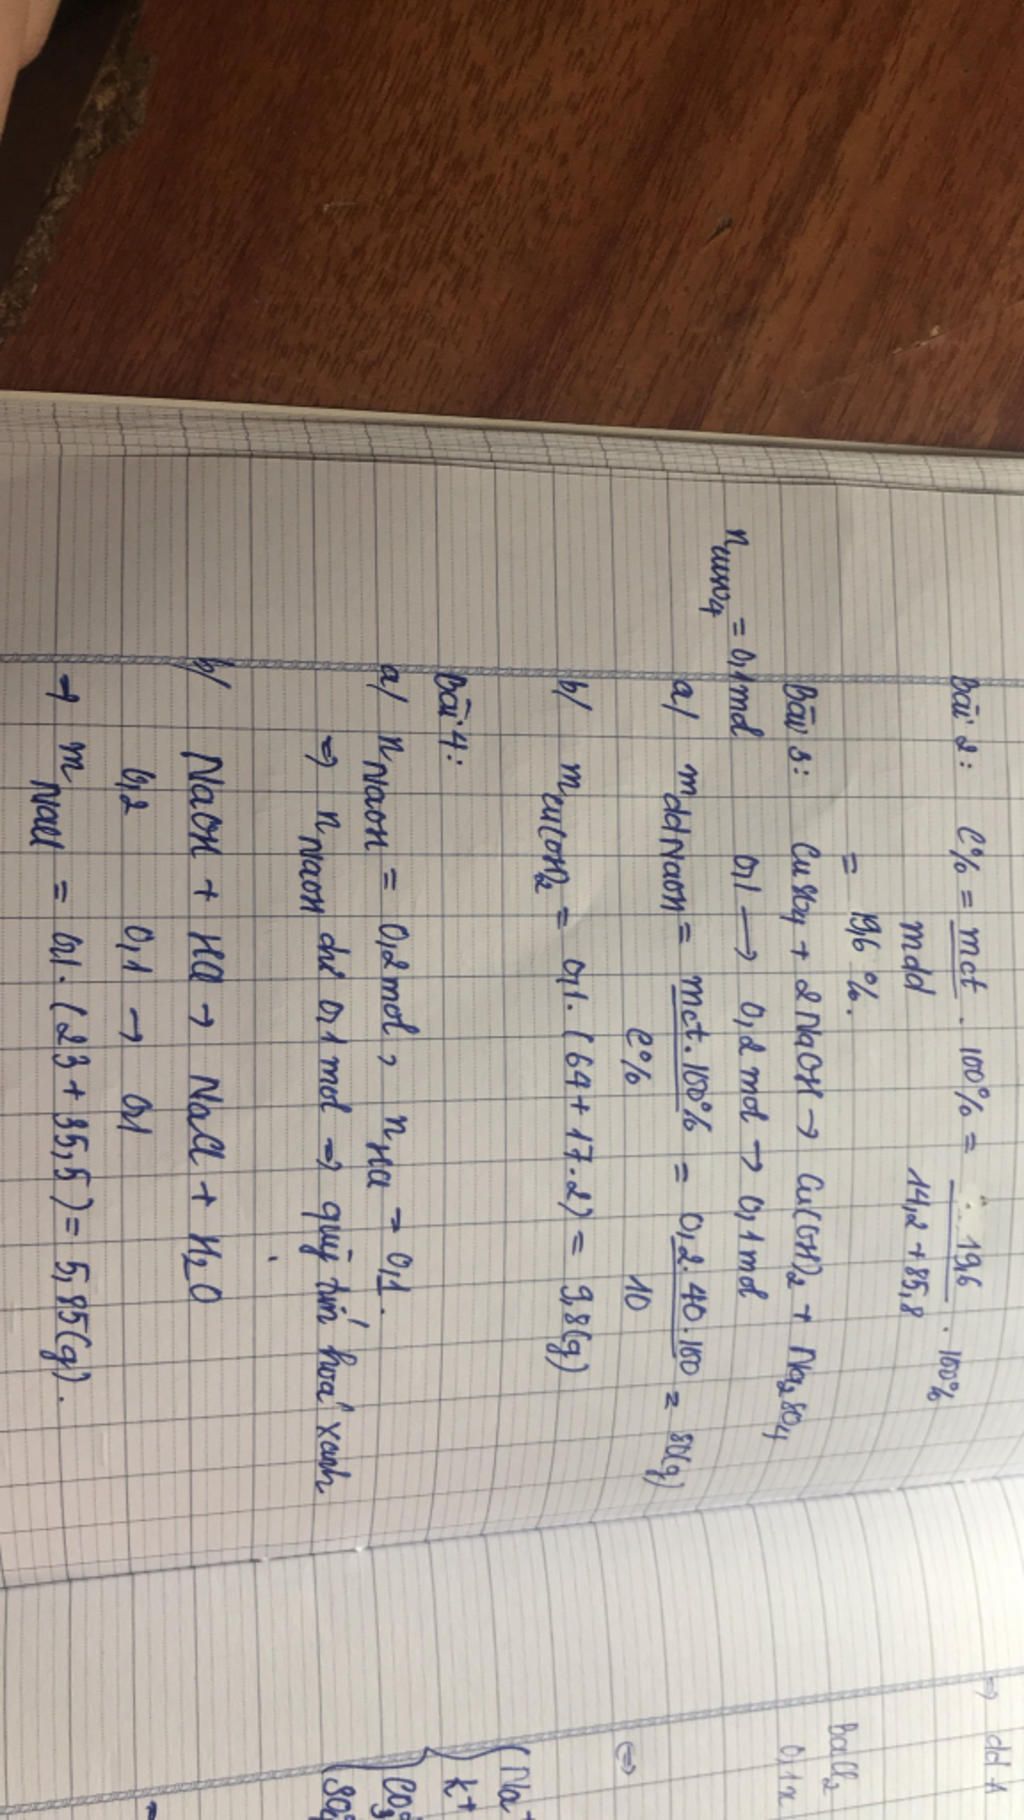 Bài 2: C% = mct/mdd . 100% = 19,6/14,2 + 85,8 . 100%
= 19,6 %.
Bài 3: CuSO4 + 2NaOH → Cu(OH)2 + Na2SO4
nCuSO4 = 0,1 mol 0,1 → 0,2 mol → 0,1 mol
a/ mddNaOH = mct.100%/C% = 0,2.40.100/10 = 80(g)
b/ mCu(OH)2 = 0,1.(64+17.2) = 9,8(g)
Bài 4:
a/ nNaOH = 0,2 mol, nHCl = 0,1.
⇒ nNaOH dư 0,1 mol ⇒ quỳ tím hoá xanh.
b/ NaOH + HCl → NaCl + H2O
0,2 0,1 → 0,1
→ mNaCl = 0,1.(23 + 35,5) = 5,85(g).
⇒ dd 1
BaCl2
0,1x
⇔
Na+
K+